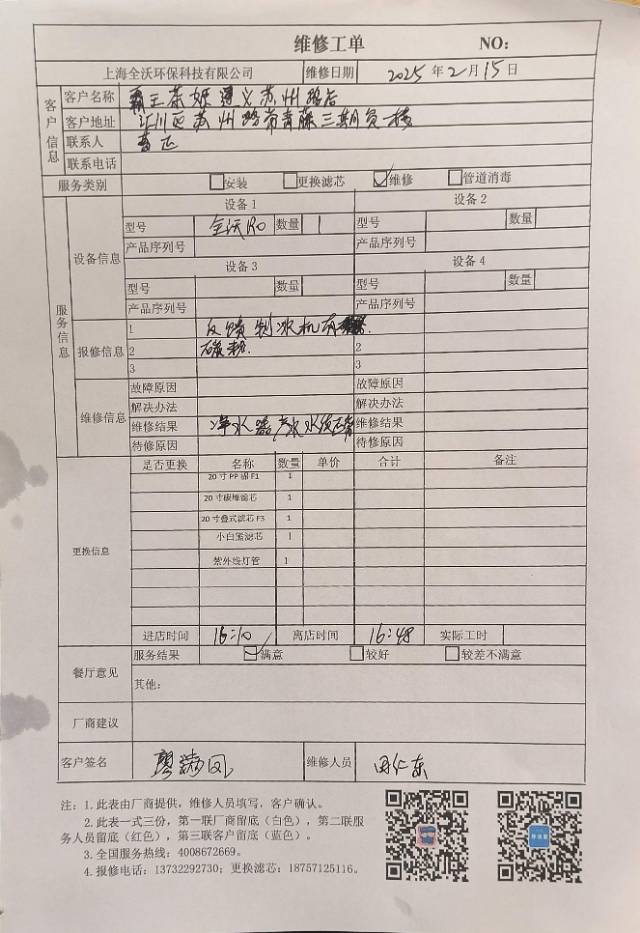 维修工单 NO:
上海全沃环保科技有限公司 维修日期 2025年2月15日
客户信息
客户名称 霸王茶姬遵义苏州路店
客户地址 汇川区苏州路常青藤三期负楼
联系人
联系电话
服务类别 安装 更换滤芯 维修 管道消毒
服务信息
设备信息
设备1 设备2
型号 全沃RO 数量 1 型号 数量
产品序列号 产品序列号
设备3 设备4
型号 数量 型号 数量
产品序列号 产品序列号
报修信息
1 反馈制冰机有
2 碳粉. 2
3 3
维修信息
故障原因 故障原因
解决办法 解决办法
维修结果 净水器产水水质正常 维修结果
待修原因 待修原因
更换信息
是否更换 名称 数量 单价 合计 备注
20寸PP棉F1 1
20寸碳维滤芯 1
20寸叠式滤芯F3 1
小白鲨滤芯 1
紫外线灯管 1
进店时间 16:10 离店时间 16:48 实际工时
餐厅意见
服务结果 满意 较好 较差不满意
其他:
厂商建议
客户签名 廖满凤 维修人员 田仁东
注: 1.此表由厂商提供, 维修人员填写, 客户确认。
2.此表一式三份, 第一联厂商留底(白色), 第二联服
务人员留底(红色), 第三联客户留底(蓝色)。
3.全国服务热线: 4008672669。
4.报修电话: 13732292730; 更换滤芯: 18757125116。